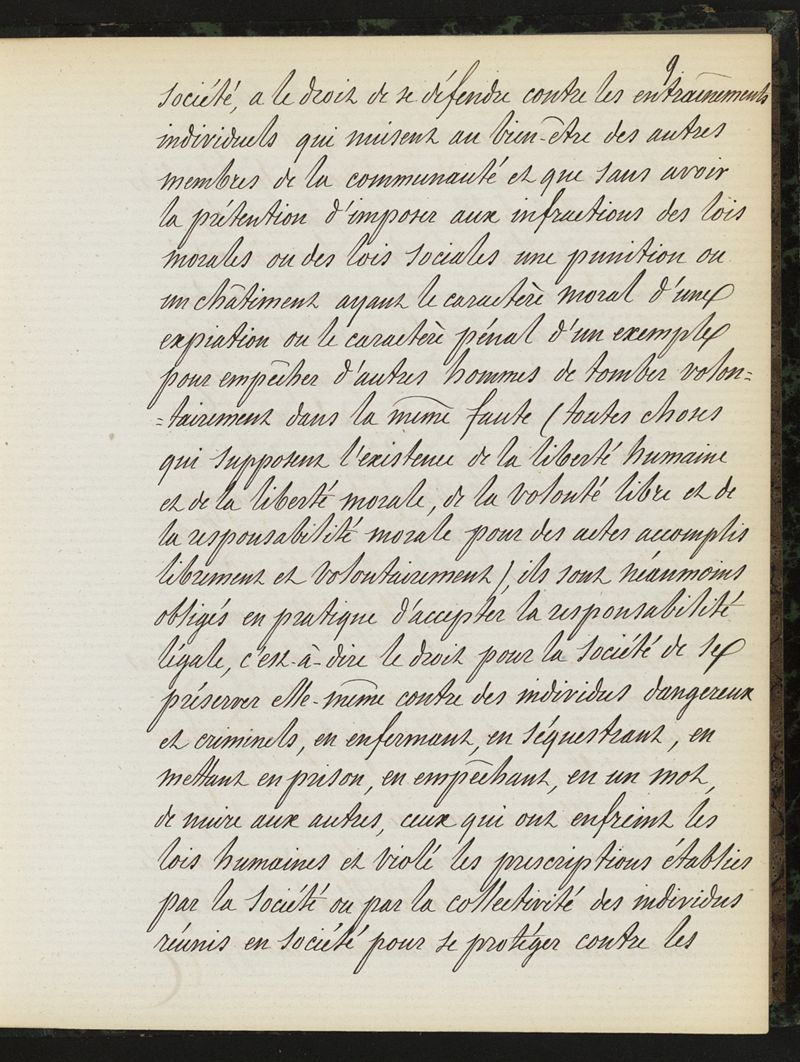 9
société, a le droit de se défendre contre les entraînements
individuels qui nuisent au bien-être des autres
membres de la communauté et que sans avoir
la prétention d'imposer aux infractions des lois
morales ou des lois sociales une punition ou
un châtiment ayant le caractère moral d'une
expiation ou le caractère pénal d'un exemple
pour empêcher d'autres hommes de tomber volon=
=tairement dans la même faute (toutes choses
qui supposent l'existence de la liberté humaine
et de la liberté morale, de la volonté libre et de
la responsabilité morale pour des actes accomplis
librement et volontairement), ils sont néanmoins
obligés en pratique d'accepter la responsabilité
légale, c'est-à-dire le droit pour la société de se
préserver elle-même contre des individus dangereux
et criminels, en enfermant, en séquestrant, en
mettant en prison, en empêchant, en un mot,
de nuire aux autres, ceux qui ont enfreint les
lois humaines et violé les prescriptions établies
par la société ou par la collectivité des individus
réunis en société pour se protéger contre les